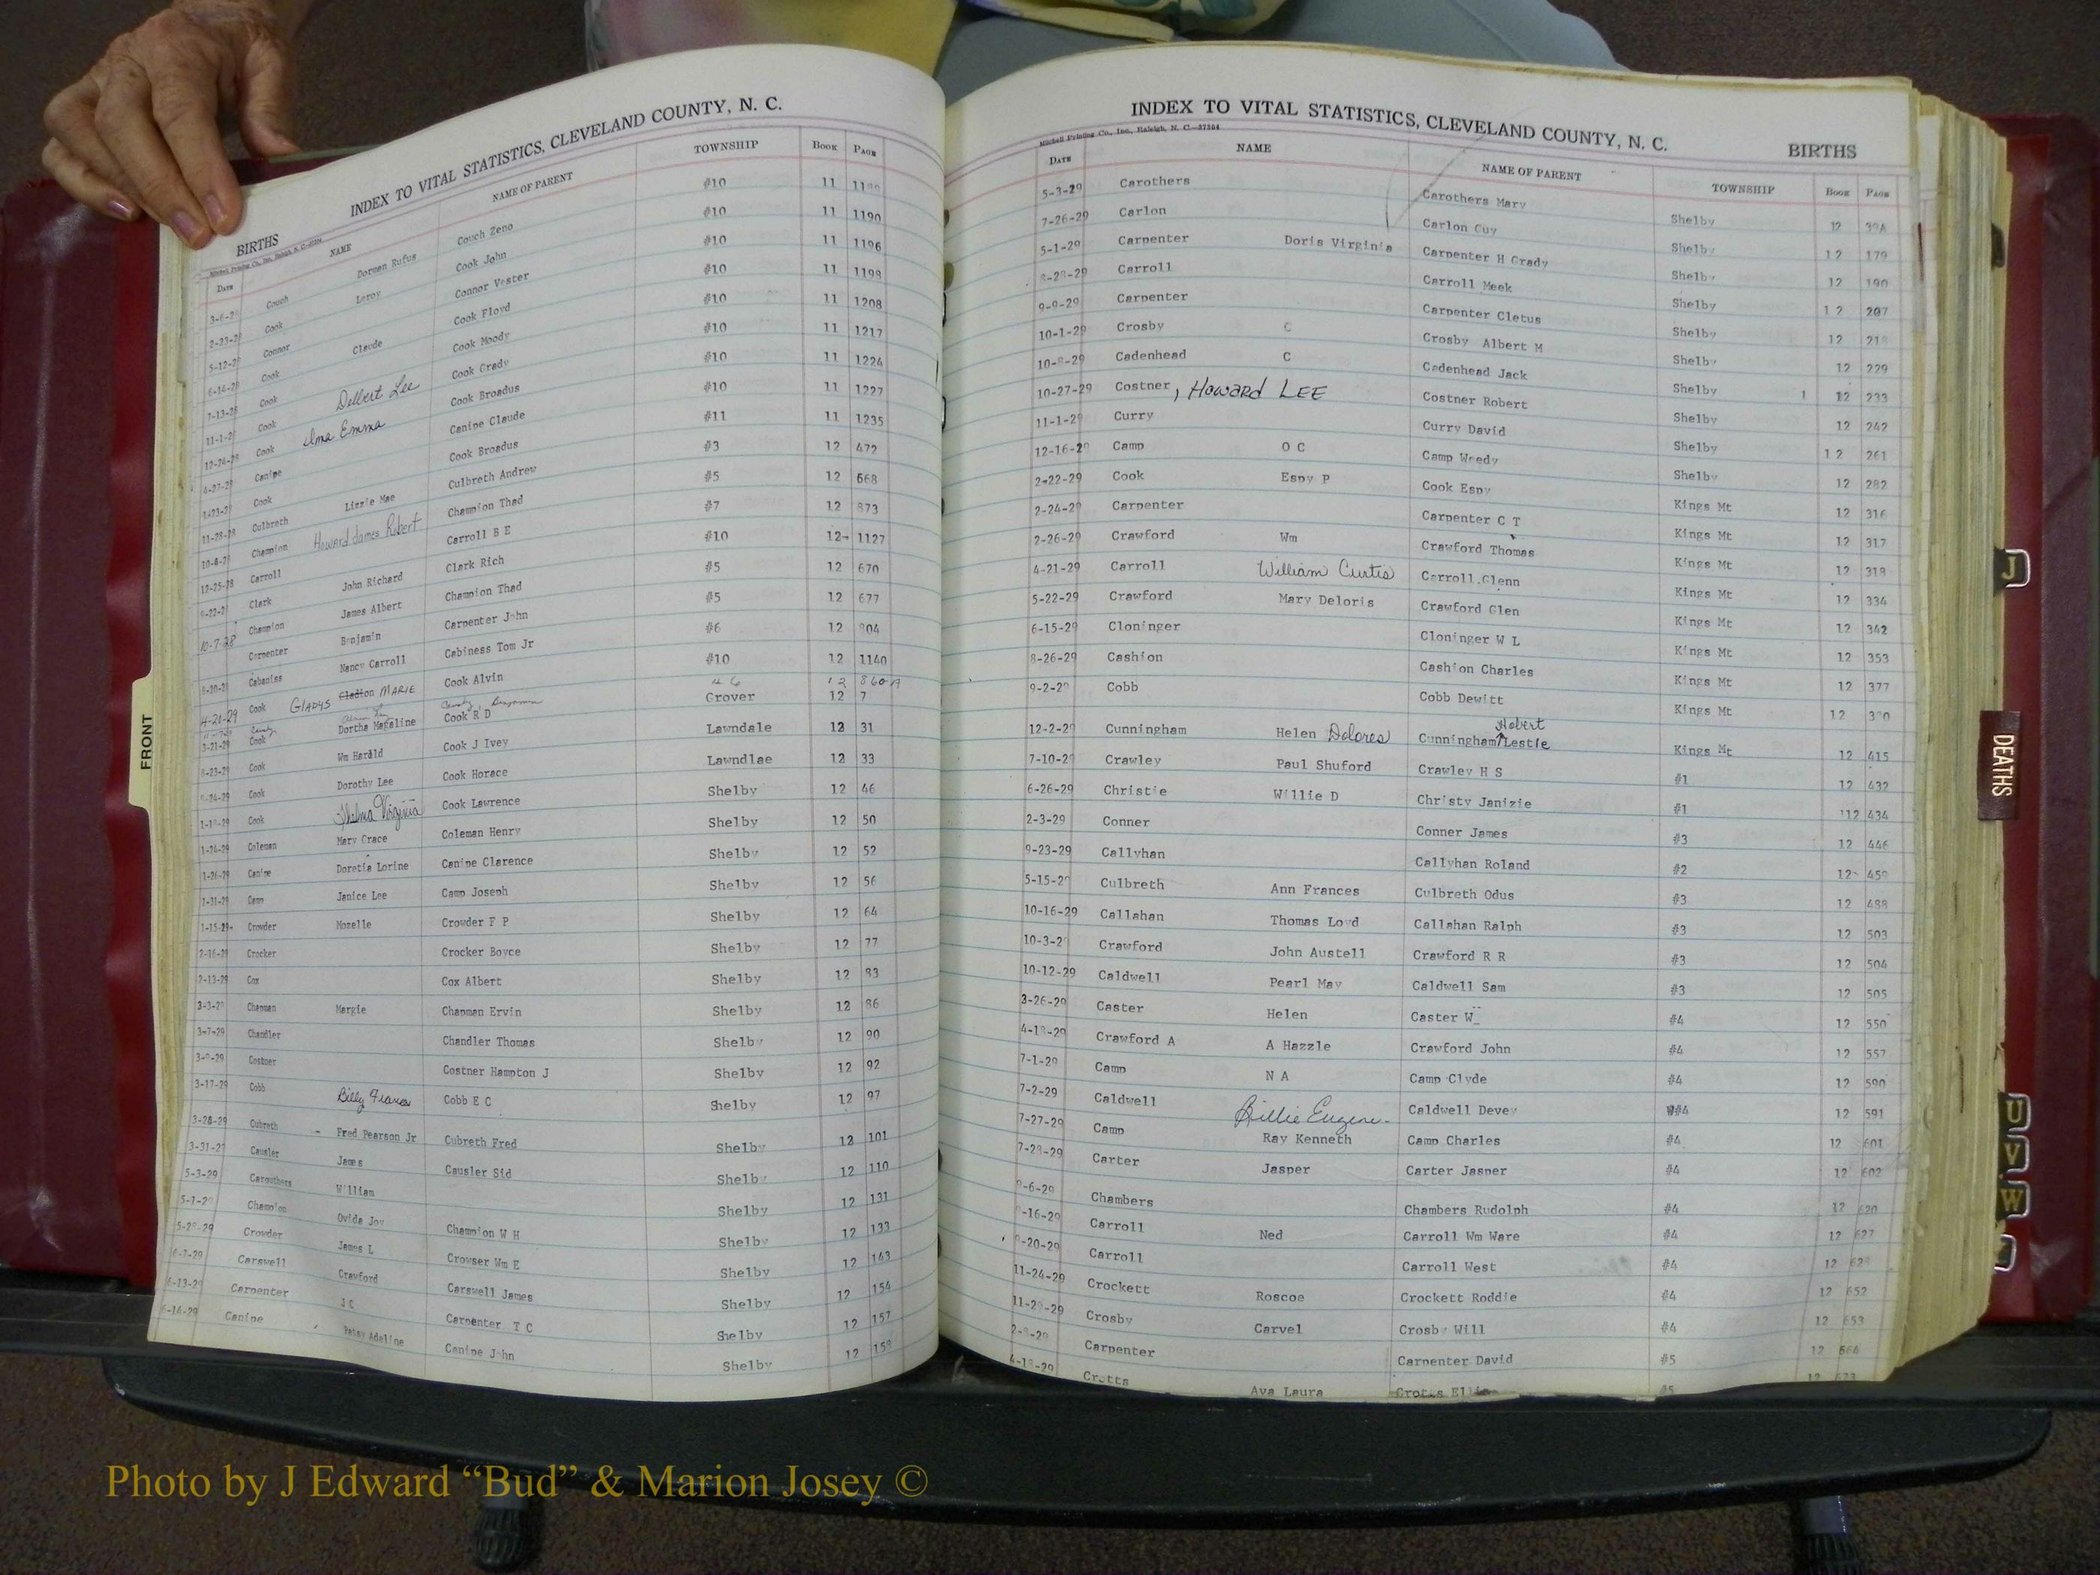 INDEX TO VITAL STATISTICS, CLEVELAND COUNTY, N. C.
BIRTHS
DATE NAME NAME OF PARENT TOWNSHIP BOOK PAGE
Couch Dorman Rufus Couch Zeno #10 11
Cook Leroy Cook John #10 11 1190
Connor Connor Vester #10 11 1196
Cook Claude Cook Floyd #10 11 1199
Cook Cook Moody #10 11 1208
Cook Delbert Lee Cook Grady #10 11 1217
Cook Ima Emma Cook Broadus #10 11 1224
Canipe Canipe Claude #10 11 1227
Cook Cook Broadus #11 11 1235
Culbreth Lizzie Mae Culbreth Andrew #3 12 472
Champion Howard James Robert Champion Thad #5 12 668
Carroll Carroll B E #7 12 873
Clark John Richard Clark Rich #10 12 1127
Champion James Albert Champion Thad #5 12 670
Carpenter Benjamin Carpenter John #5 12 677
Cabaniss Nancy Carroll Cabiness Tom Jr #6 12 804
4-20-29 Cook GLADYS MARIE Cook Alvin #10 12 1140
#6 12 860A
3-21-29 Cook Dortha Magaline Cook R D Grover 12 7
8-23-29 Cook Wm Harald Cook J Ivey Lawndale 12 31
Cook Dorothy Lee Cook Horace Lawndlae 12 33
Cook Thelma Virginia Cook Lawrence Shelby 12 46
1-24-29 Coleman Mary Grace Coleman Henry Shelby 12 50
1-26-29 Canipe Doretia Lorine Canipe Clarence Shelby 12 52
1-31-29 Camp Janice Lee Camp Joseph Shelby 12 56
1-15-29 Crowder Mozelle Crowder F P Shelby 12 64
2-16-29 Crocker Crocker Boyce Shelby 12 77
2-13-29 Cox Cox Albert Shelby 12 83
3-3-29 Chapman Margie Chapman Ervin Shelby 12 86
3-7-29 Chandler Chandler Thomas Shelby 12 90
Costner Costner Hampton J Shelby 12 92
3-17-29 Cobb Billy Francis Cobb E C Shelby 12 97
3-28-29 Cubreth Fred Pearson Jr Cubreth Fred Shelby 12 101
3-31-29 Causler James Causler Sid Shelby 12 110
5-3-29 Carouthers William Shelby 12 131
5-1-29 Champion Ovida Joy Champion W H Shelby 12 133
5-28-29 Crowder James L Crowser Wm E Shelby 12 143
Carswell Crawford Carswell James Shelby 12 154
6-13-29 Carpenter J C Carpenter T C Shelby 12 157
6-14-29 Canipe Patsy Adeline Canipe John Shelby 12 158
FRONT
INDEX TO VITAL STATISTICS, CLEVELAND COUNTY, N. C.
Mitchell Printing Co., Inc., Raleigh, N. C.—37304
BIRTHS
DATE NAME NAME OF PARENT TOWNSHIP BOOK PAGE
5-3-29 Carothers Carothers Mary Shelby 12 39A
7-26-29 Carlon Carlon Guy Shelby 12 179
5-1-29 Carpenter Doris Virginia Carpenter H Grady Shelby 12 190
8-28-29 Carroll Carroll Meek Shelby 12 207
9-9-29 Carpenter Carpenter Cletus Shelby 12
10-1-29 Crosby C Crosby Albert M Shelby 12 229
10-8-29 Cadenhead C Cadenhead Jack Shelby 12 233
10-27-29 Costner, Howard LEE Costner Robert Shelby 12 242
11-1-29 Curry Curry David Shelby 12 261
12-16-29 Camp O C Camp Weedy Shelby 12 282
2-22-29 Cook Espy P Cook Espy Kings Mt 12 316
2-24-29 Carpenter Carpenter C T Kings Mt 12 317
2-26-29 Crawford Wm Crawford Thomas Kings Mt 12 318
4-21-29 Carroll William Curtis Carroll Glenn Kings Mt 12 334
5-22-29 Crawford Mary Deloris Crawford Glen Kings Mt 12 342
6-15-29 Cloninger Cloninger W L Kings Mt 12 353
8-26-29 Cashion Cashion Charles Kings Mt 12 377
9-2-29 Cobb Cobb Dewitt Kings Mt 12
12-2-29 Cunningham Helen Dolores Cunningham Hobert Lestle Kings Mt 12 415
7-10-29 Crawley Paul Shuford Crawley H S #1 12 432
6-26-29 Christie Willie D Christy Janizie #1 112 434
2-3-29 Conner Conner James #3 12 446
9-23-29 Callyhan Callyhan Roland #2 12 459
5-15-29 Culbreth Ann Frances Culbreth Odus #3 12 488
10-16-29 Callahan Thomas Loyd Callahan Ralph #3 12 503
10-3-29 Crawford John Austell Crawford R R #3 12 504
10-12-29 Caldwell Pearl May Caldwell Sam #3 12 505
3-26-29 Caster Helen Caster W #4 12 550
4-18-29 Crawford A A Hazzle Crawford John #4 12 557
7-1-29 Camp N A Camp Clyde #4 12 590
7-2-29 Caldwell Billie Eugene Caldwell Devey #4 12 591
7-27-29 Camp Ray Kenneth Camp Charles #4 12 601
7-28-29 Carter Jasper Carter Jasper #4 12 602
9-6-29 Chambers Chambers Rudolph #4 12 620
Carroll Ned Carroll Wm Ware #4 12 627
Carroll Carroll West #4 12
11-24-29 Crockett Roscoe Crockett Roddie #4 12 652
11-29-29 Crosby Carvel Crosby Will #4 12 653
Carpenter Carpenter David #5 12 664
4-18-29 Crotts Ava Laura Crotts #5
J
DEATHS
U
V
W
Photo by J Edward “Bud” & Marion Josey ©